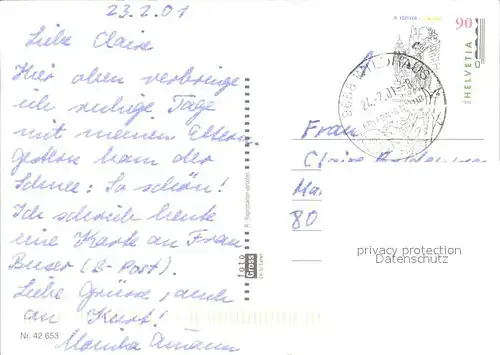 23.2.01
Liebe Claire
Hier oben verbringe
ich ruhige Tage
mit meinen Eltern,
Gestern kam der
Schnee: So schön!
Ich schreibe heute
eine Karte an Frau
Buser (B-Post).
Liebe Grüsse, auch
an Kurt!
Monika
Nr. 42 653
foto
Gross
Reproduktion verboten
90
HELVETIA
Frau
Claire
80
privacy protection
Datenschutz